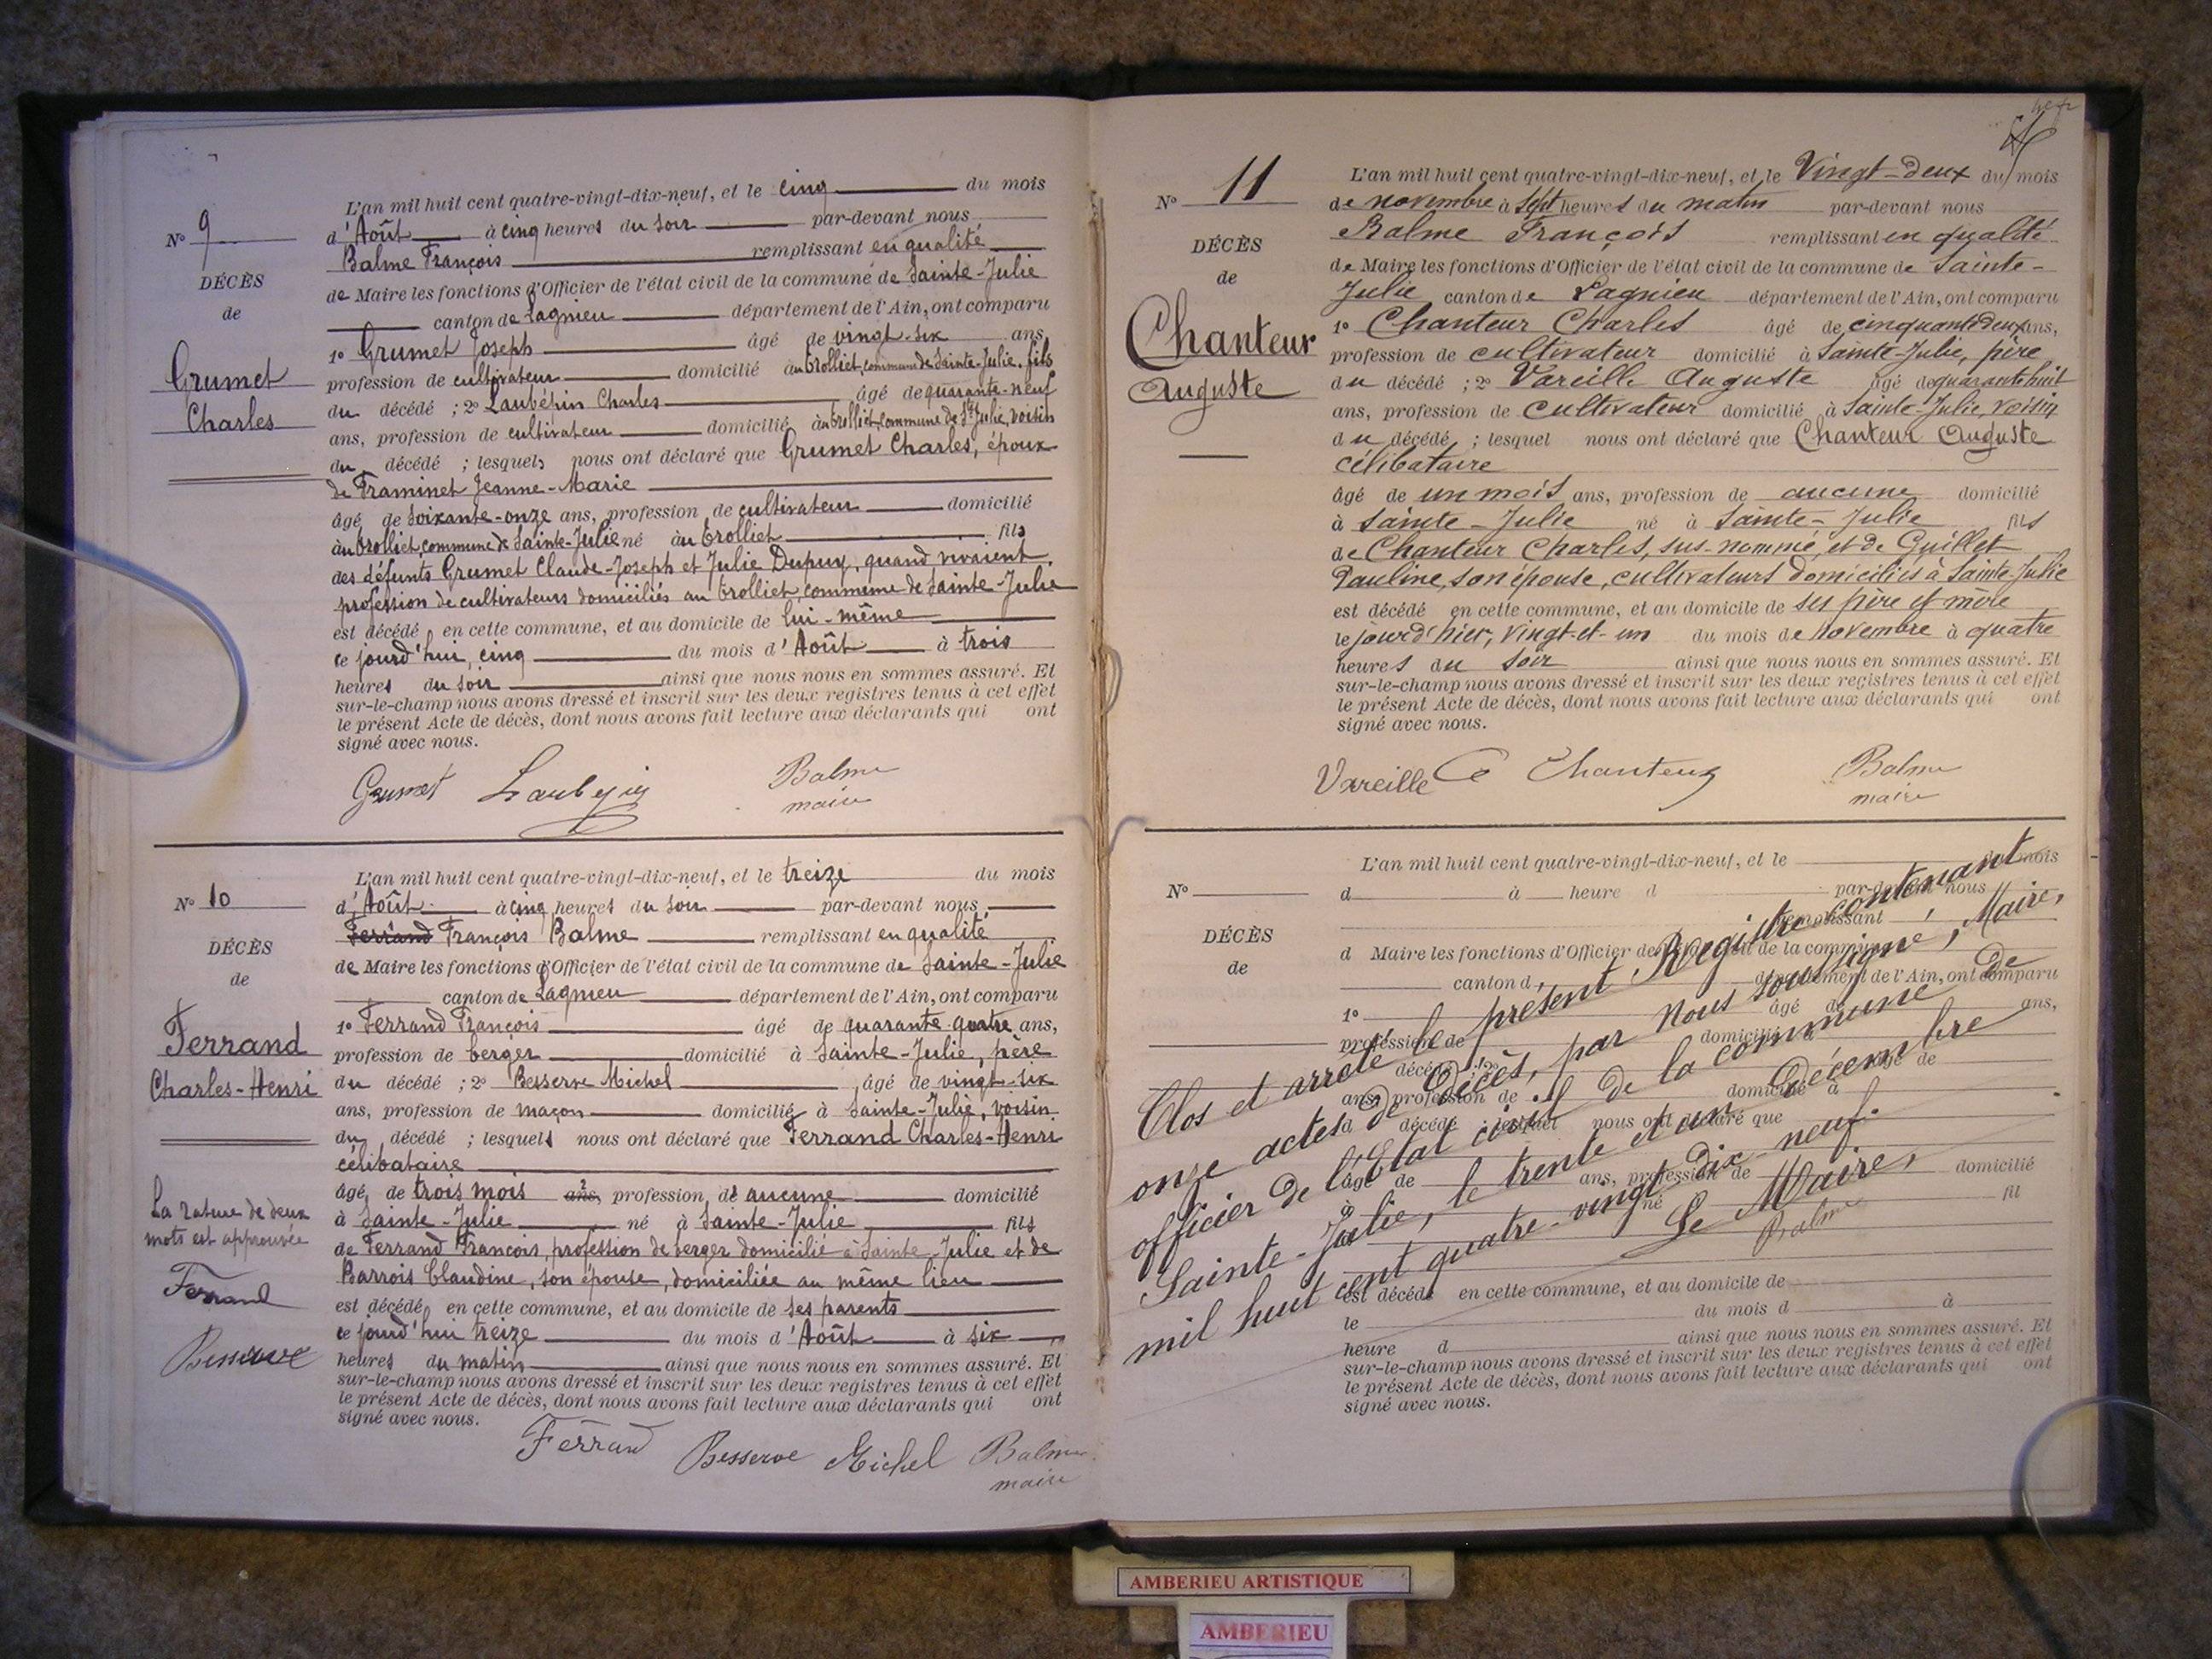 N° 9
DÉCÈS
de
Grumet
Charles
L'an mil huit cent quatre-vingt-dix-neuf, et le cinq du mois
d'Août à cinq heures du soir par-devant nous
Balme François remplissant en qualité
de Maire les fonctions d'Officier de l'état civil de la commune de Sainte-Julie
canton de Lagnieu département de l'Ain, ont comparu
1° Grumet Joseph âgé de vingt-six ans,
profession de cultivateur domicilié au Trolliet, commune de Sainte-Julie, fils
du décédé ; 2° Laubépin Charles âgé de quarante-neuf
ans, profession de cultivateur domicilié au Trolliet, commune de Ste Julie, voisin
du décédé ; lesquels nous ont déclaré que Grumet Charles, époux
de Framinet Jeanne-Marie
âgé de soixante-onze ans, profession de cultivateur domicilié
au Trolliet, commune de Sainte-Julie né au Trolliet fils
des défunts Grumet Claude-Joseph et Julie Dupuy, quand vivaient
profession de cultivateurs domiciliés au Trolliet, commune de Sainte-Julie
est décédé en cette commune, et au domicile de lui-même
ce jourd'hui, cinq du mois d'Août à trois
heures du soir ainsi que nous nous en sommes assuré. Et
sur-le-champ nous avons dressé et inscrit sur les deux registres tenus à cet effet
le présent Acte de décès, dont nous avons fait lecture aux déclarants qui ont
signé avec nous.
Grumet Laubepin Balme
maire
N° 10
DÉCÈS
de
Ferrand
Charles-Henri
La rature de deux
mots est approuvée
Ferrand
Besserve
L'an mil huit cent quatre-vingt-dix-neuf, et le treize du mois
d'Août à cinq heures du soir par-devant nous
Ferrand François Balme remplissant en qualité
de Maire les fonctions d'Officier de l'état civil de la commune de Sainte-Julie
canton de Lagnieu département de l'Ain, ont comparu
1° Ferrand François âgé de quarante-quatre ans,
profession de berger domicilié à Sainte-Julie, père
du décédé ; 2° Besserve Michel âgé de vingt-six
ans, profession de maçon domicilié à Sainte-Julie, voisin
du décédé ; lesquels nous ont déclaré que Ferrand Charles-Henri
célibataire
âgé de trois mois ans, profession de aucune domicilié
à Sainte-Julie né à Sainte-Julie fils
de Ferrand François, profession de berger domicilié à Sainte-Julie et de
Barrois Claudine, son épouse, domiciliée au même lieu
est décédé en cette commune, et au domicile de ses parents
ce jourd'hui treize du mois d'Août à six
heures du matin ainsi que nous nous en sommes assuré. Et
sur-le-champ nous avons dressé et inscrit sur les deux registres tenus à cet effet
le présent Acte de décès, dont nous avons fait lecture aux déclarants qui ont
signé avec nous.
Ferrand Besserve Michel Balme
maire
N° 11
DÉCÈS
de
Chanteur
Auguste
L'an mil huit cent quatre-vingt-dix-neuf, et le Vingt-deux du mois
de novembre à sept heures du matin par-devant nous
Balme François remplissant en qualité
de Maire les fonctions d'Officier de l'état civil de la commune de Sainte-
Julie canton de Lagnieu département de l'Ain, ont comparu
1° Chanteur Charles âgé de cinquante deux ans,
profession de cultivateur domicilié à Sainte-Julie, père
du décédé ; 2° Vareille Auguste âgé de quarante huit
ans, profession de cultivateur domicilié à Sainte-Julie, voisin
du décédé ; lesquel nous ont déclaré que Chanteur Auguste
célibataire
âgé de un mois ans, profession de aucune domicilié
à Sainte-Julie né à Sainte-Julie fils
de Chanteur Charles, sus-nommé, et de Guillet
Pauline, son épouse, cultivateurs domiciliés à Sainte-Julie
est décédé en cette commune, et au domicile de ses père et mère
le jourd'hier, vingt-et-un du mois de novembre à quatre
heures du soir ainsi que nous nous en sommes assuré. Et
sur-le-champ nous avons dressé et inscrit sur les deux registres tenus à cet effet
le présent Acte de décès, dont nous avons fait lecture aux déclarants qui ont
signé avec nous.
Vareille C Chanteur Balme
maire
N°
DÉCÈS
de
L'an mil huit cent quatre-vingt-dix-neuf, et le du mois
d à heure d par-devant nous
remplissant
d Maire les fonctions d'Officier de l'état civil de la commune
canton d département de l'Ain, ont comparu
1° âgé de ans,
profession de domicilié à
décédé ; 2° âgé de
ans, profession de domicilié à
d décédé ; lesquel nous ont déclaré que
âgé de ans, profession de domicilié
à né fil
est décédé en cette commune, et au domicile de
le du mois d à
heure d ainsi que nous nous en sommes assuré. Et
sur-le-champ nous avons dressé et inscrit sur les deux registres tenus à cet effet
le présent Acte de décès, dont nous avons fait lecture aux déclarants qui ont
signé avec nous.
Clos et arrêté le présent Registre contenant
onze actes de Décès, par nous soussigné, Maire,
officier de l'État civil de la commune de
Sainte-Julie, le trente et un Décembre
mil huit cent quatre-vingt-dix-neuf.
Le Maire,
Balme
AMBERIEU ARTISTIQUE
AMBERIEU